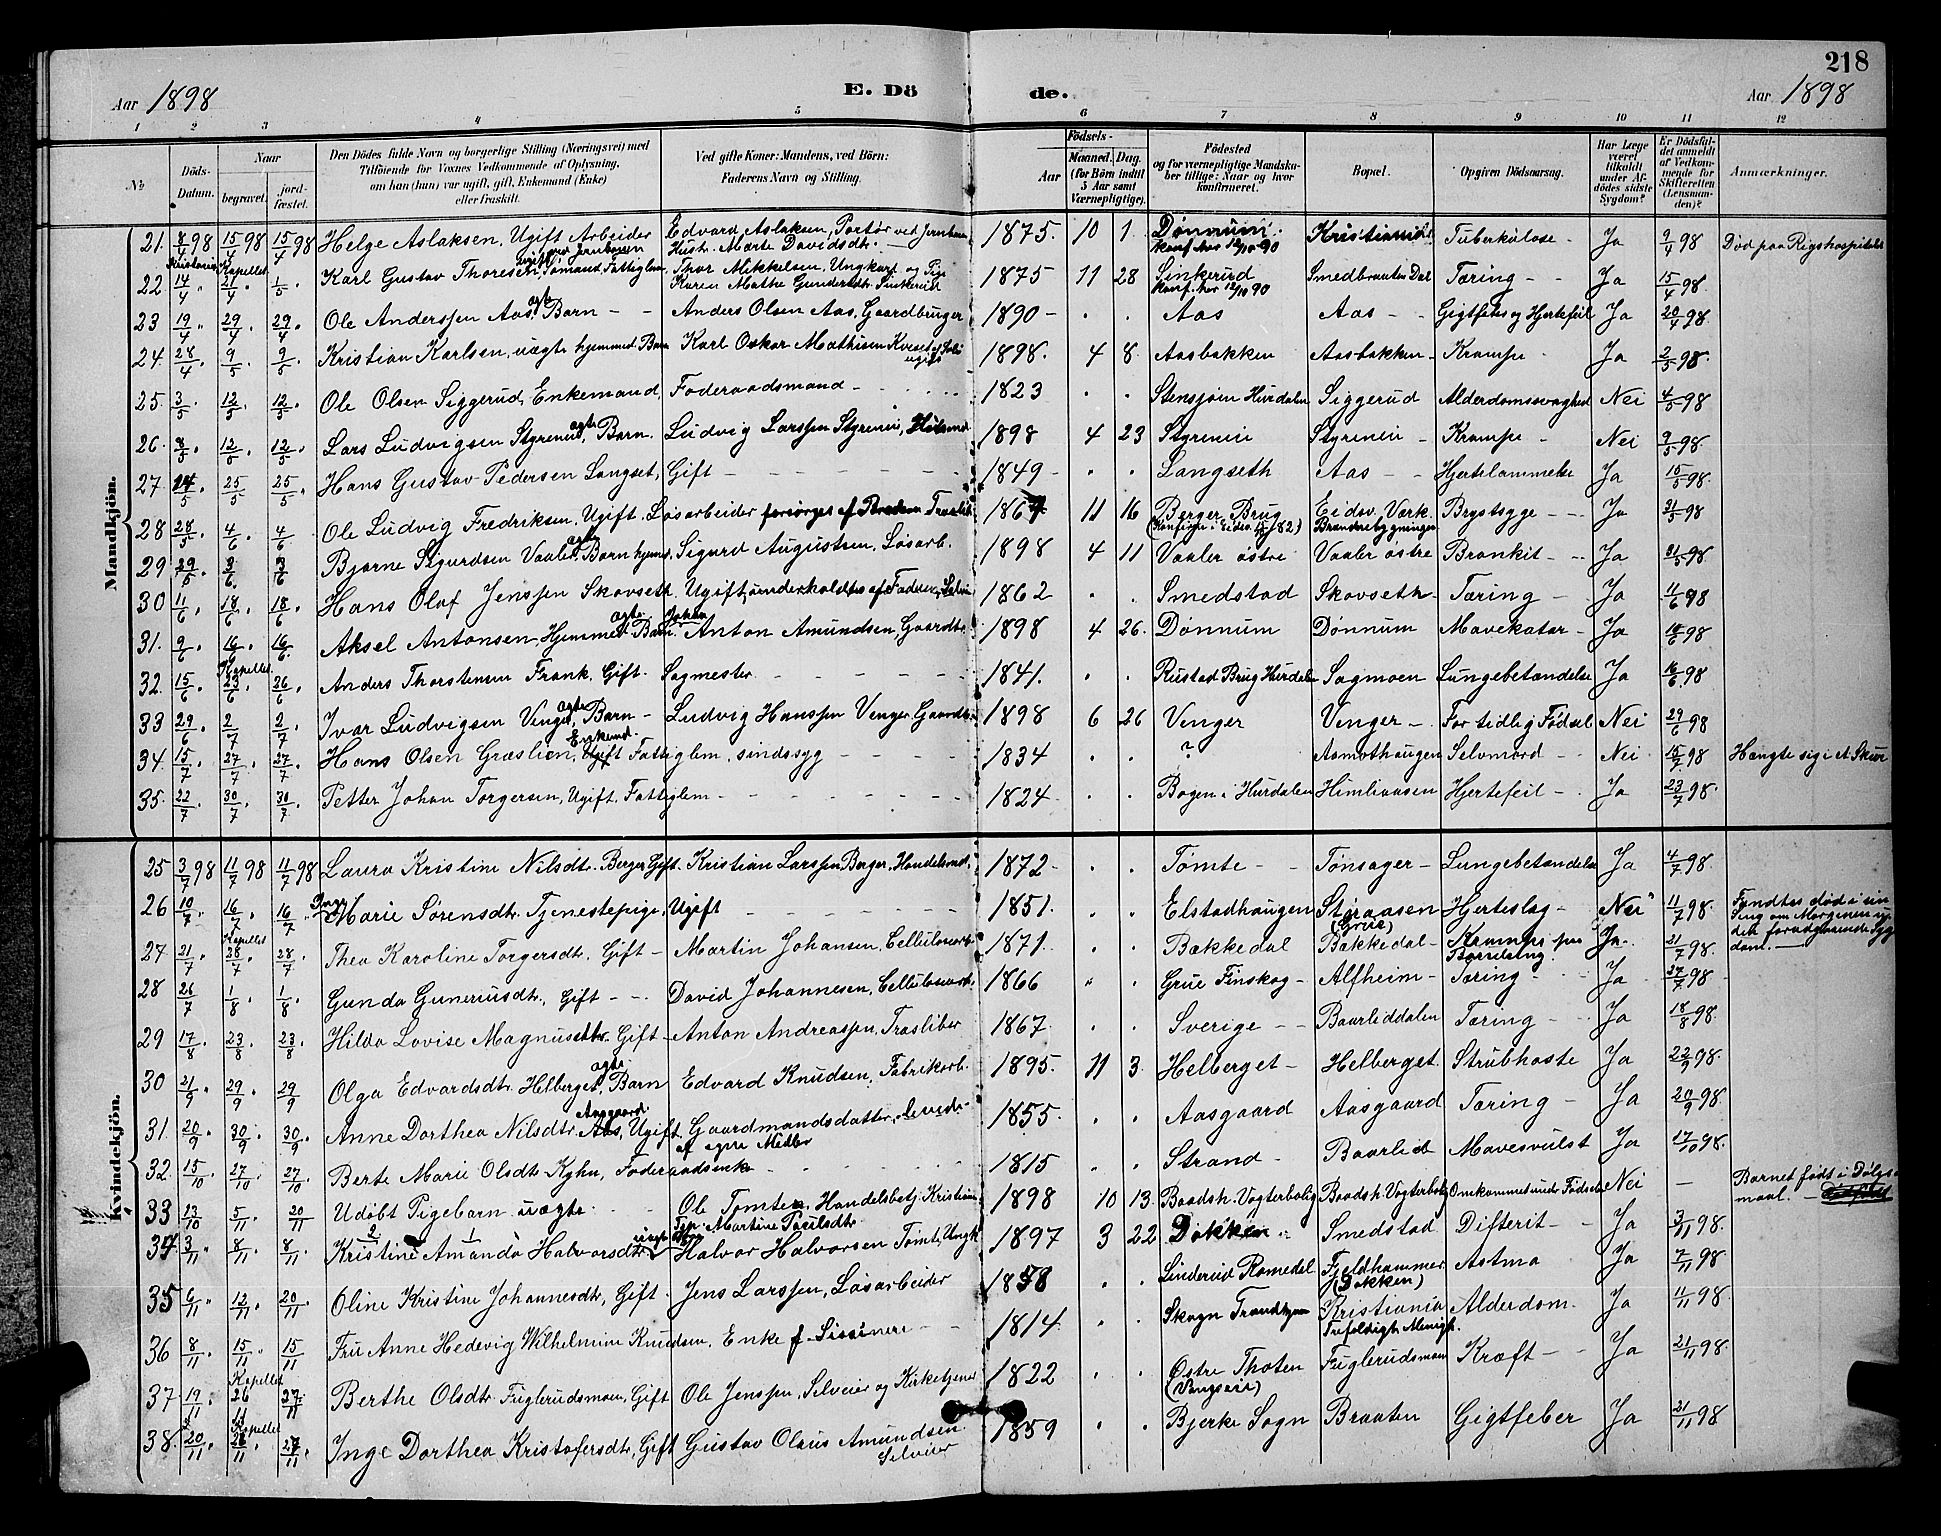 218
Aar 1898 E. Dö de. Aar 1898
1 2 3 4 5 6 7 8 9 10 11 12
№ Döds-Datum. Naar begravet. jordfæstet. Den Dödes fulde Navn og borgerlige Stilling (Næringsvei) med Tilföiende for Voxnes Vedkommende af Oplysning, om han (hun) var ugift, gift, Enkemand (Enke) eller fraskilt. Ved gifte Koner: Mandens, ved Börn: Faderens Navn og Stilling. Födsels- Aar Maaned. Dag. (for Börn indtil 5 Aar samt Værnepligtige). Födested og for værnepligtige Mandskaber tillige: Naar og hvor konfirmeret. Bopæl. Opgiven Dödsaarsag. Har Læge været tilkaldt under Afdödes sidste Sygdom? Er Dödsfaldet anmeldt af Vedkommende for Skifteretten (Lensmanden)? Anmærkninger.
Mandkjön.
21. 8/4 98 15/4 98 15/4 98 Helge Aslaksen, Ugift Arbeider Edvard Aslaksen, Portør ved Jernbanen Hustr. Marte Davidsdtr. 1875. 10 1. Dønnum. Konf. her 12/10 90 Kristiania Tuberkulose Ja 9/4 98 Død paa Rigshospitalet
22. 14/4 Kapellet 21/4 1/5 Karl Gustav Thoresen, Thor Mikkelsen, Ungkarl og Pige Karen Mathe Gundersdtr. Sinkerud 1875 11 28 Sinkerud Konf. her 12/10 90 Smedbraaten Dal Tæring Ja 15/4 98.
23 19/4 29/4 29/4 Ole Anderssen Aas, ægte Barn Anders Olsen Aas, Gaardbruger 1890 Aas Aas Gigtfeber og Hjertefeil Ja 20/4 98
24. 28/4 9/5 9/5 Kristian Karlsen, uægte hjemmed. Barn Karl Oskar Mathisen ugift 1898. 4 8. Aasbakken Aasbakken Krampe Ja 2/5 98.
25. 3/5 12/5 12/5 Ole Olsen Siggerud, Enkemand, Føderaadsmand 1823 Stensjøen Hurdalen Siggerud Alderdomssvaghed Nei 4/5 98
26. 8/5 12/5 12/5 Lars Ludvigsen Styreneie, ægte Barn. Ludvig Larssen Styreneie, Husmd 1898 4 23 Styreneie Styreneie Krampe Nei 9/5 98
27. 14/5 25/5 25/5 Hans Gustav Pedersen Langset, Gift 1849 Langseth Aas Hjertelammelse Ja 15/5 98.
28. 28/5 4/6 4/6 Ole Ludvig Fredriksen, Ugift. Løsarbeider 1867 11 16 Berger Brug (Konfirm. i Eidsv. 82) Eidsv. Værk. Brandnebygningen Brystsyge Ja 31/5 98
29. 29/5 3/6 3/6 Bjarne Sigurdsen Vaaler, ægte Barn hjemd. Sigurd Augustsen, Løsarb. 1898 4 11 Vaaler østre Vaaler østre Bronkit Ja 31/5 98.
30 11/6 18/6 18/6 Hans Olaf Jenssen Skovseth. Ugift, underholdtes af Faderen, Selveier 1862 Smedstad Skovseth Tæring Ja 11/6 98
31. 9/6 16/6 16/6 Aksel Antonsen, Hjemmed. ægte Barn. Anton Amundsen, Gaardbr. 1898 4 26. Dønnum Dønnum Mavekatar Ja 98
32. 15/6 Kapellet 23/6 26/6 Anders Thorstensen Frank, Gift. Sagmester 1841. Rustad Brug Hurdalen Sagmoen Lungebetændelse Ja 16/6 98
33 29/6 2/7 2/7 Ivar Ludvigsen Venger, ægte Barn Ludvig Hanssen Venger Gaardbr. 1898 6 26 Venger Venger For tidlig Fødsel Nei 29/6 98
34. 15/7 27/7 27/7 Hans Olsen Græslien, Enkemd. Fattiglem, sindssyg 1834 ? Asmothaugen Selvmord Nei 15/7 98 Hængte sig i et Skur
35. 22/7 30/7 30/7 Petter Johan Torgersen, Ugift, Fattiglem 1824 Bogen i Hurdalen Himliaasen Hjertefeil Ja 23/7 98.
Kvindekjön.
25 3/7 98 11/7 98 11/7 98 Laura Kristine Nilsdtr. Berger Gift. Kristian Larssen Berger, Handelsmd. 1872 Tømte Tønsager Lungebetændelse Ja 4/7 98
26 10/7 16/7 16/7 Inger Marie Sørensdtr. Tjenestepige, Ugift 1851. Elstadhaugen Styraasen Hjerteslag Nei 11/7 98. Fandtes død i sin Seng om Morgenen uden foregaaende Sygdom.
27 21/7 Kapellet 28/7 28/7 Thea Karoline Torgersdtr., Gift Martin Johansen, Cellulosearb. 1871. Bækkedal (Grue) Bækkedal Krampe paa Barselseng. Ja 21/7 98.
28 26/7 1/8 1/8 Gunda Guneriusdtr., Gift David Johannesen, Cellulosearb. 1866 Grue Finskog Alfheim Tæring Ja 27/7 98
29 17/8 23/8 23/8 Hilda Lovise Magnusdtr. Gift Anton Andreassen, Træsliber 1867. Sverige Baarliddalen Tæring Ja 18/8 98.
30 21/9 29/9 29/9 Olga Edvardsdtr. Helberget, ægte Barn Edvard Knudsen, Fabrikarb. 1895. 11 3. Helberget Helberget Strubhoste Ja 22/9 98.
31. 20/9 30/9 30/9 Anne Dorthea Nilsdtr. Aasgaard, Ugift Gaardmandsdatter, levede af egne Midler 1855. Aasgaard Aasgaard Tæring Ja 20/9 98
32. 15/10 27/10 27/10 Berte Marie Olsdtr. Kyhn, Føderaadsenke 1815 Strand Baarlid Mavesvulst Ja 17/10 98.
33 13/10 5/11 20/11 Udøbt Pigebarn uægte Ole Tomter, Handelsbetj. Kristiania Pige Martine Paulsdtr. 1898 10 13. Baadsh. Vogterbolig Baadsh. Vogterbolig Omkommet under Fødselen Nei Barnet født i Dølgsmaal.
34 3/11 8/11 8/11 Kristine Amanda Halvorsdtr. Halvor Halvorsen Tømt, Ungk. 1897 3 22 Dokken Smedstad Difterit Ja 3/11 98.
35 6/11 12/11 20/11 Oline Kristine Johannesdtr., Gift. Jens Larssen, Løsarbeider 1858 Linderud Romedal Fjeldhammer (Dokken) Astma Ja 7/11 98
36 8/11 15/11 15/11 Fru Anne Hedevig Wilhelmine Knudsen. Enke f. Sissinere 1814. Skogn Trondhjem Kristiania Trefoldigh. Menigh. Alderdom. Ja 11/11 98
37 19/11 Kapellet 26/11 27/11 Berthe Olsdtr. Fuglerudsmoen, Gift Ole Jenssen, Selveier og Kirketjener 1822 Østre Thoten Fuglerudsmoen Kræft Ja 21/11 98.
38. 20/11 Kapellet 27/11 Inge Dorthea Kristofersdtr., Gift Gustav Olaus Amundsen. Selveier 1859 Bjerke Sogn Braaten Gigtfeber Ja 21/11 98